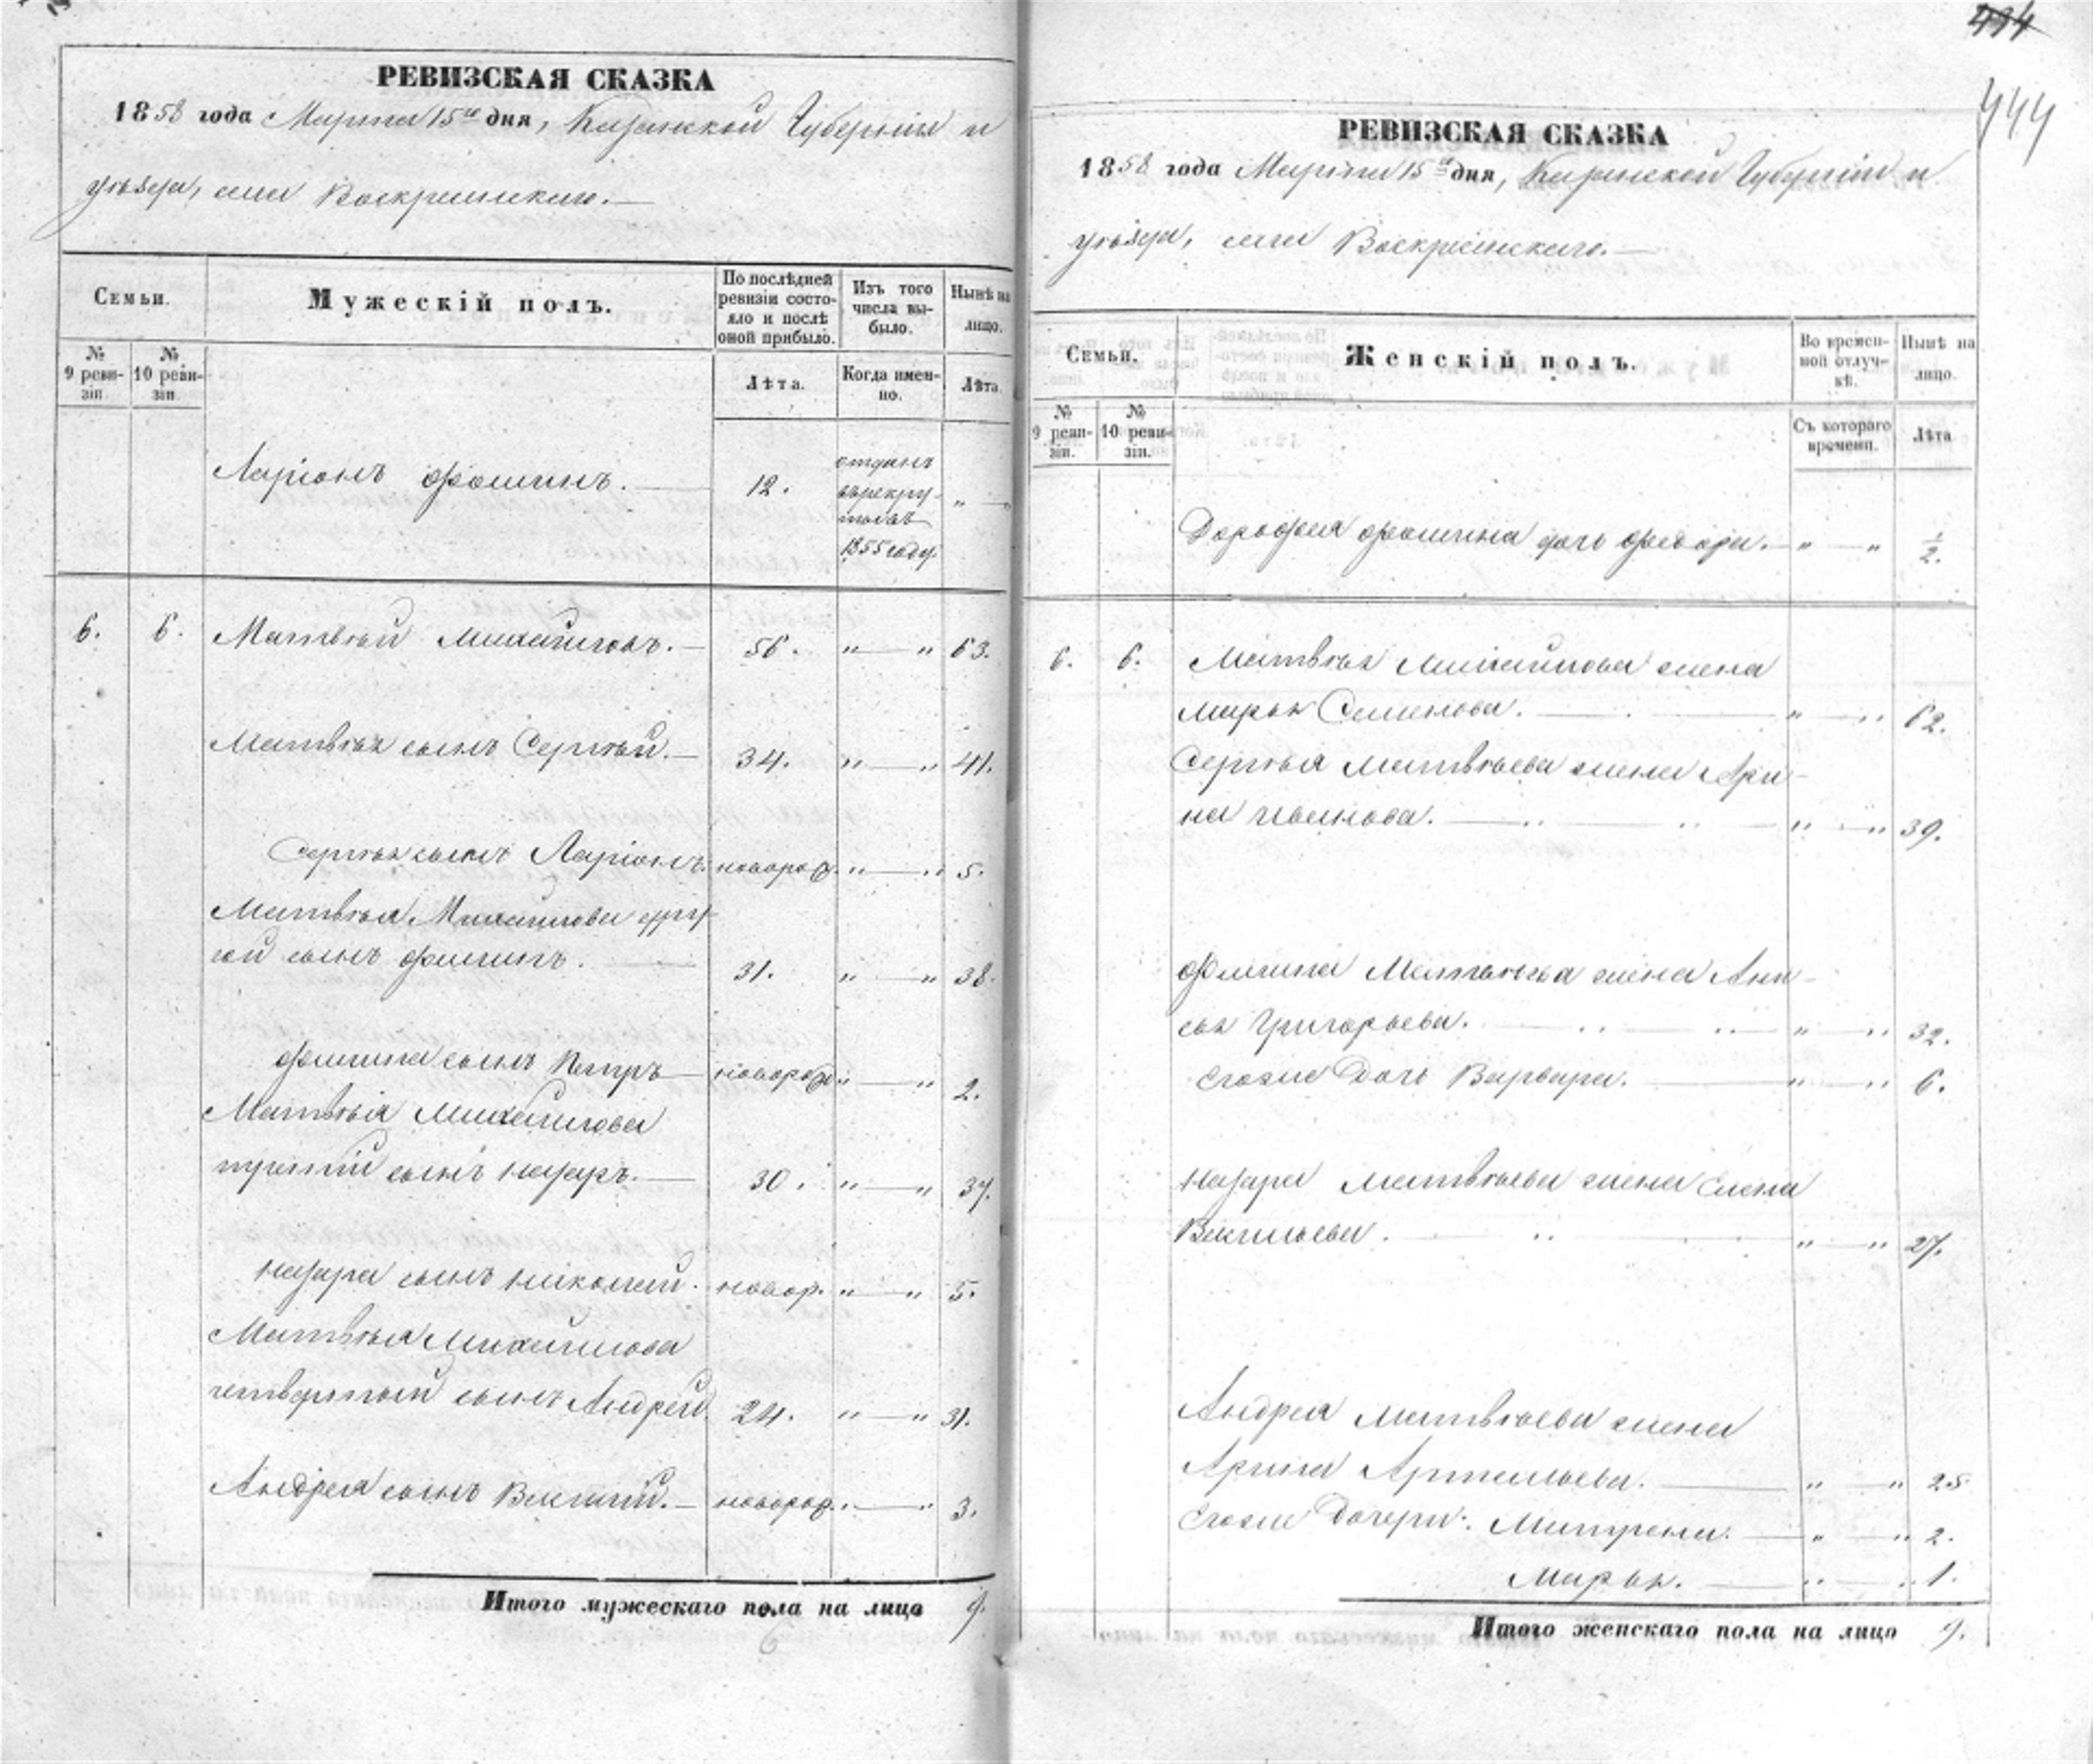 РЕВИЗСКАЯ СКАЗКА
1858 года Марта 15го дня, Казанской Губернiи и
уѣзда, села Воскресенскаго.
Семьи.
Мужескiй полъ.
По послѣдней ревизiи состояло и послѣ оной прибыло.
Изъ того числа выбыло.
Нынѣ на лицо.
№ 9 ревизiи
№ 10 ревизiи
Лѣта.
Когда именно.
Лѣта.
Ларiонъ Фоминъ. 12. отданъ въ рекруты 1855 году. „ — „
6. 6. Матвѣй Михайловъ. 56. „ — „ 63.
Матвѣя сынъ Сергѣй. 34. „ — „ 41.
Сергѣя сынъ Ларiонъ. новорож. „ — „ 5.
Матвѣя Михайлова дру-
гой сынъ 31. „ — „ 38.
сынъ Петръ новорож „ — „ 2.
Матвѣя Михайлова
третiй сынъ Назаръ. 30. „ — „ 37.
Назара сынъ Николай. новор. „ — „ 5.
Матвѣя Михайлова
четвертый сынъ Андрей. 24. „ — „ 31.
Андрея сынъ Василiй. новорож. „ — „ 3.
Итого мужескаго пола на лицо 9.
444
444
РЕВИЗСКАЯ СКАЗКА
1858 года Марта 15го дня, Казанской Губернiи и
уѣзда, села Воскресенскаго.
Семьи.
Женскiй полъ.
Во временной отлучкѣ.
Нынѣ на лицо.
№ 9 ревизiи.
№ 10 ревизiи.
Съ котораго времени.
Лѣта
Дорофея Фомина дочь Федора. „ — „ 1/2.
6. 6. Матвѣя Михайлова жена
Марья Семенова. „ — „ 62.
Сергѣя Матвѣева жена Ари-
на Иванова. „ — „ 39.
Матвѣева жена Ани-
сья Григорьева. „ — „ 32.
Егоже Дочь Варвара. „ — „ 6.
Назара Матвѣева жена Елена
Васильева. „ — „ 27.
Андрея Матвѣева жена
Арина Артемьева. „ — „ 25
Егоже Дочери: Матрена. „ — „ 2.
Марья. „ — „ 1.
Итого женскаго пола на лицо 9.